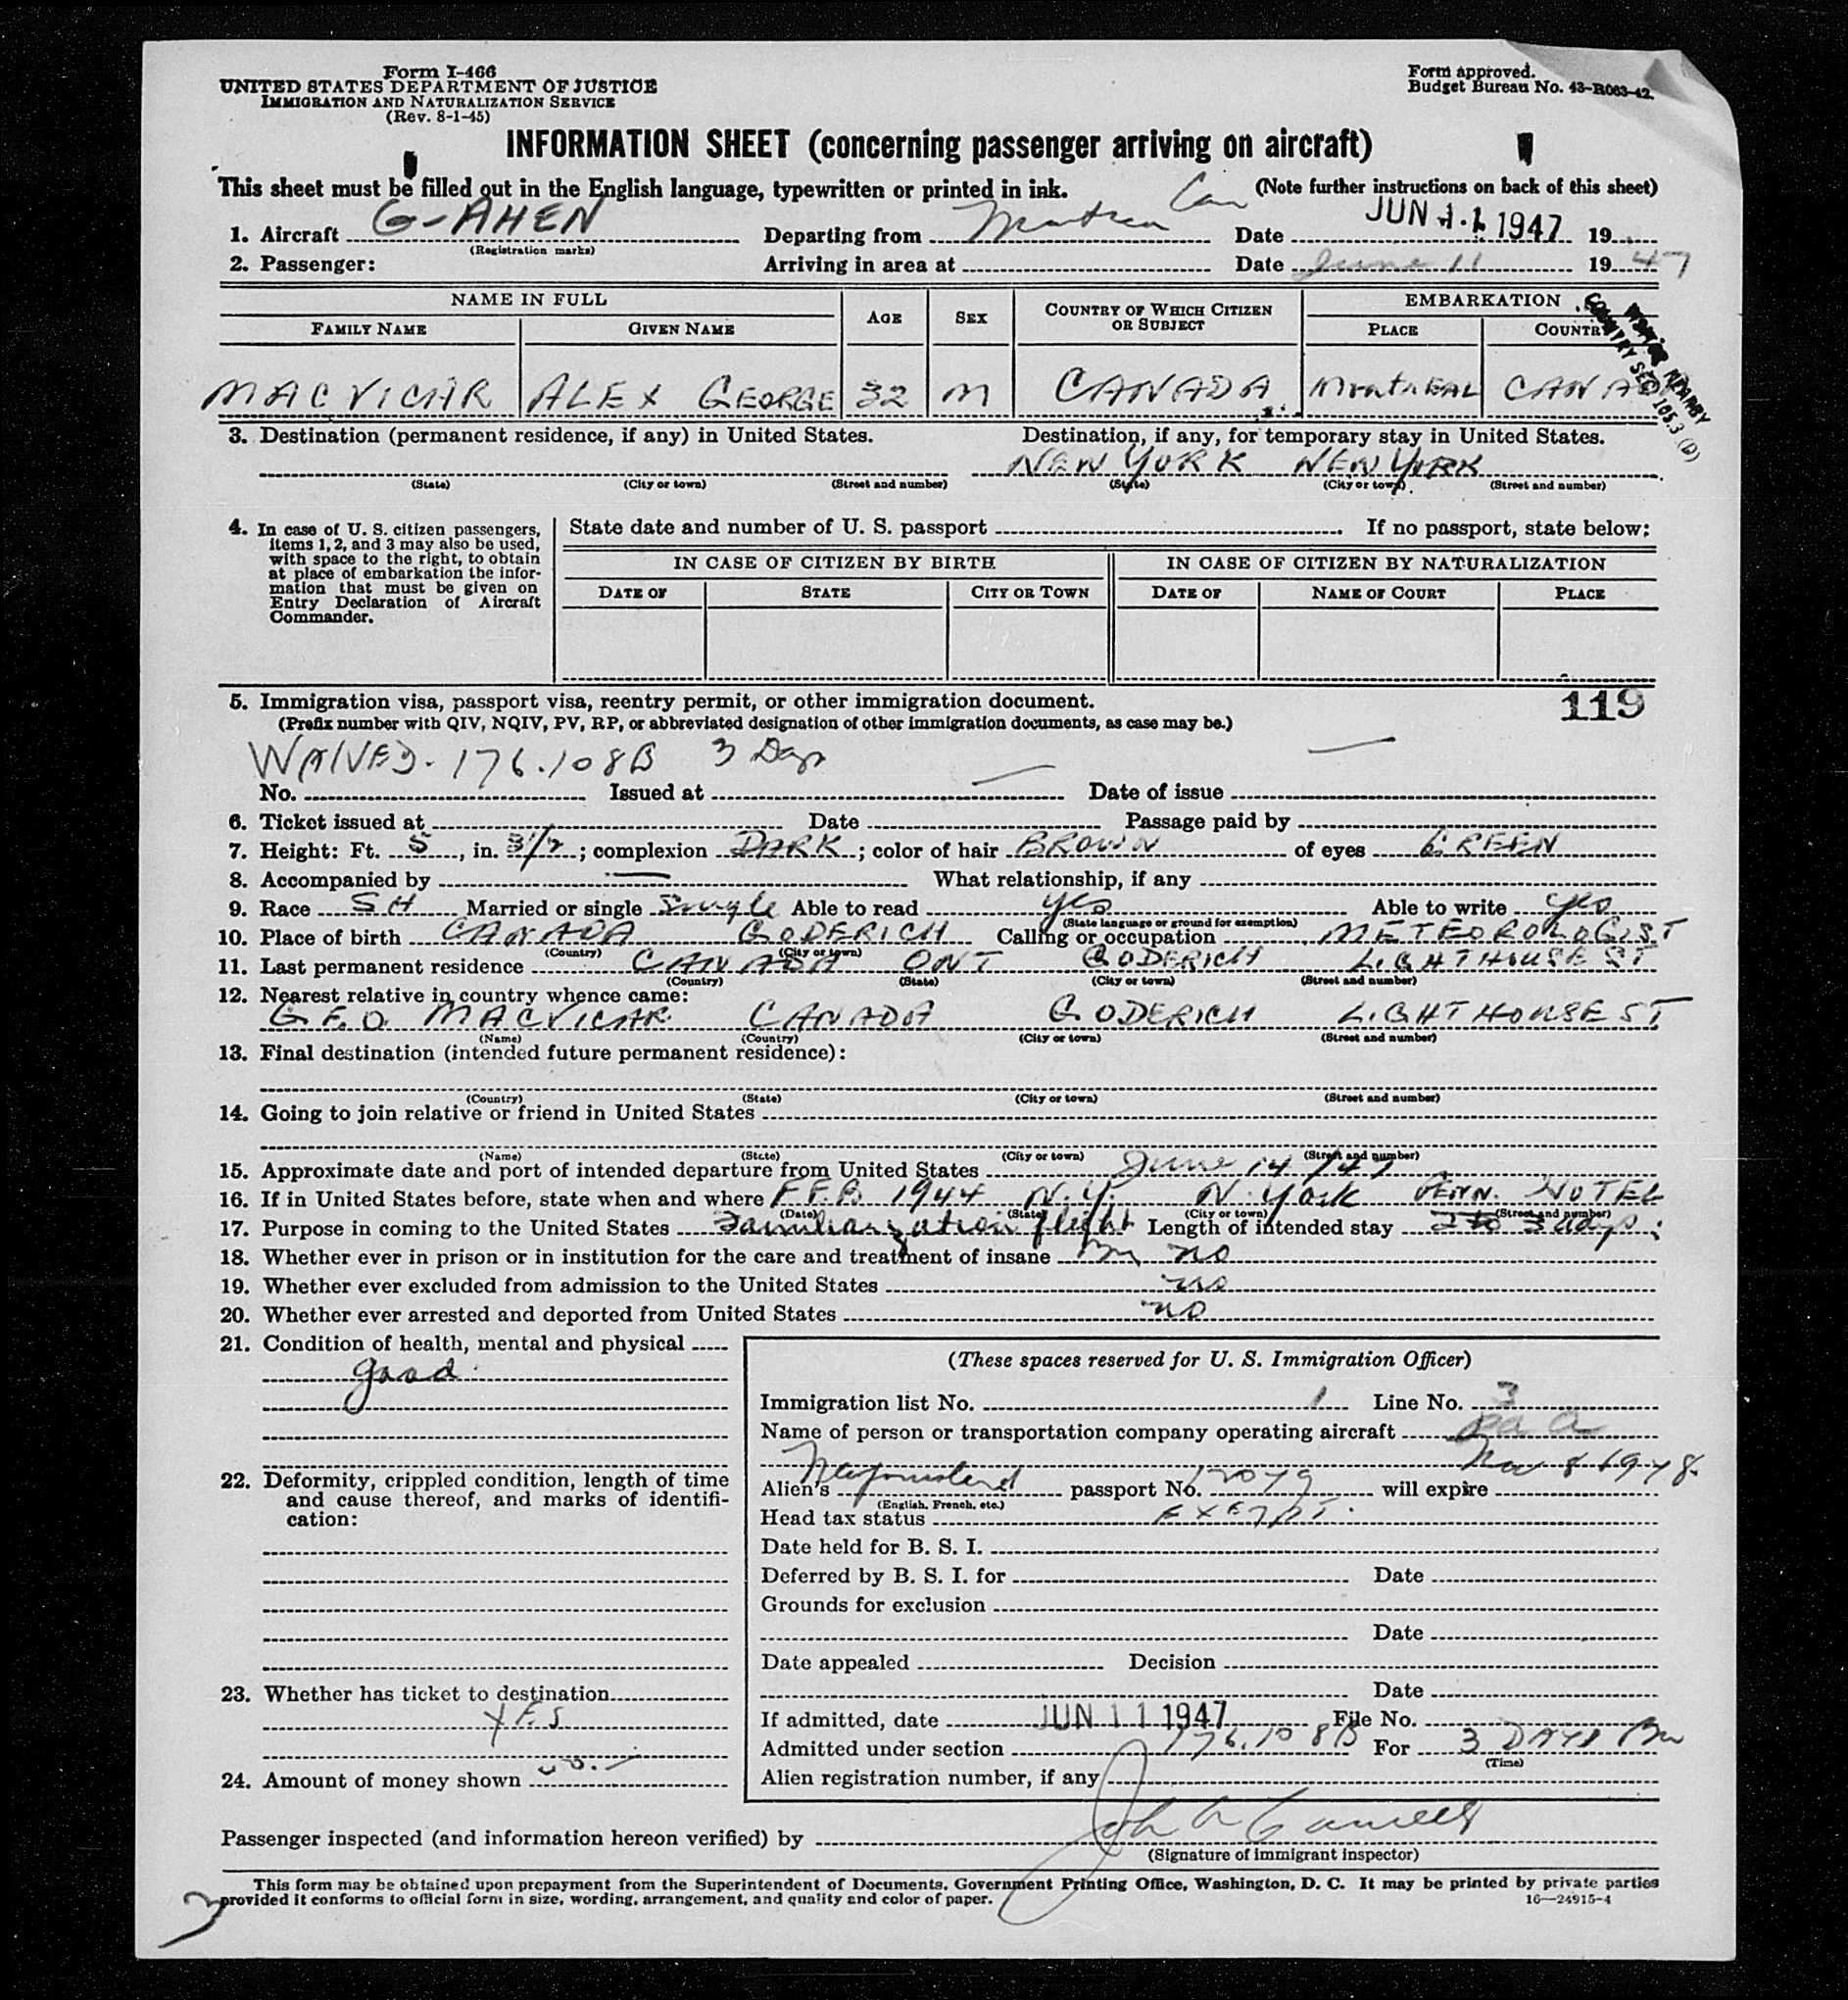 Form I-466
UNITED STATES DEPARTMENT OF JUSTICE
IMMIGRATION AND NATURALIZATION SERVICE
(Rev. 8-1-45)
Form approved.
Budget Bureau No. 43-R063-42.
INFORMATION SHEET (concerning passenger arriving on aircraft)
This sheet must be filled out in the English language, typewritten or printed in ink. (Note further instructions on back of this sheet)
1. Aircraft G-AHEN Departing from Can Date JUN 11 1947 19
(Registration marks)
2. Passenger: Arriving in area at Date June 11 1947
NAME IN FULL AGE SEX COUNTRY OF WHICH CITIZEN OR SUBJECT EMBARKATION
FAMILY NAME GIVEN NAME PLACE COUNTRY
COUNTRY SEC 165.3 (D)
MACVICAR ALEX GEORGE 32 M CANADA MONTREAL CANADA
3. Destination (permanent residence, if any) in United States. Destination, if any, for temporary stay in United States.
NEW YORK NEW YORK
(State) (City or town) (Street and number) (State) (City or town) (Street and number)
4. In case of U. S. citizen passengers, items 1, 2, and 3 may also be used, with space to the right, to obtain at place of embarkation the information that must be given on Entry Declaration of Aircraft Commander.
State date and number of U. S. passport If no passport, state below:
IN CASE OF CITIZEN BY BIRTH IN CASE OF CITIZEN BY NATURALIZATION
DATE OF STATE CITY OR TOWN DATE OF NAME OF COURT PLACE
5. Immigration visa, passport visa, reentry permit, or other immigration document. 119
(Prefix number with QIV, NQIV, PV, RP, or abbreviated designation of other immigration documents, as case may be.)
WAIVED. 176.108B 3 Days
No. Issued at Date of issue
6. Ticket issued at Date Passage paid by
7. Height: Ft. 5, in. 3 1/2; complexion DARK; color of hair BROWN of eyes GREEN
8. Accompanied by What relationship, if any
9. Race SH Married or single Single Able to read yes Able to write yes
(State language or ground for exemption)
10. Place of birth CANADA GODERICH Calling or occupation METEOROLOGIST
(Country) (City or town)
11. Last permanent residence CANADA ONT GODERICH LIGHTHOUSE ST
(Country) (State) (City or town) (Street and number)
12. Nearest relative in country whence came:
GEO MACVICAR CANADA GODERICH LIGHTHOUSE ST
(Name) (Country) (City or town) (Street and number)
13. Final destination (intended future permanent residence):
(Country) (State) (City or town) (Street and number)
14. Going to join relative or friend in United States
(Name) (State) (City or town) (Street and number)
15. Approximate date and port of intended departure from United States June 14/47
16. If in United States before, state when and where FEB 1944 N.Y. N. York PENN. HOTEL
(Date) (State) (City or town) (Street and number)
17. Purpose in coming to the United States Familiarization flight Length of intended stay 2 to 3 days
18. Whether ever in prison or in institution for the care and treatment of insane no
19. Whether ever excluded from admission to the United States no
20. Whether ever arrested and deported from United States no
21. Condition of health, mental and physical
good
22. Deformity, crippled condition, length of time and cause thereof, and marks of identification:
23. Whether has ticket to destination
YES
24. Amount of money shown
(These spaces reserved for U. S. Immigration Officer)
Immigration list No. 1 Line No. 3
Name of person or transportation company operating aircraft
Alien's Newfoundland passport No. 12079 will expire Nov 8 1948
(English, French, etc.)
Head tax status EXEMPT.
Date held for B. S. I.
Deferred by B. S. I. for Date
Grounds for exclusion
Date
Date appealed Decision
Date
If admitted, date JUN 11 1947 File No.
Admitted under section 176.108B For 3 DAYS
(Time)
Alien registration number, if any
Passenger inspected (and information hereon verified) by John
(Signature of immigrant inspector)
This form may be obtained upon prepayment from the Superintendent of Documents, Government Printing Office, Washington, D. C. It may be printed by private parties
provided it conforms to official form in size, wording, arrangement, and quality and color of paper. 16—24915-4
3